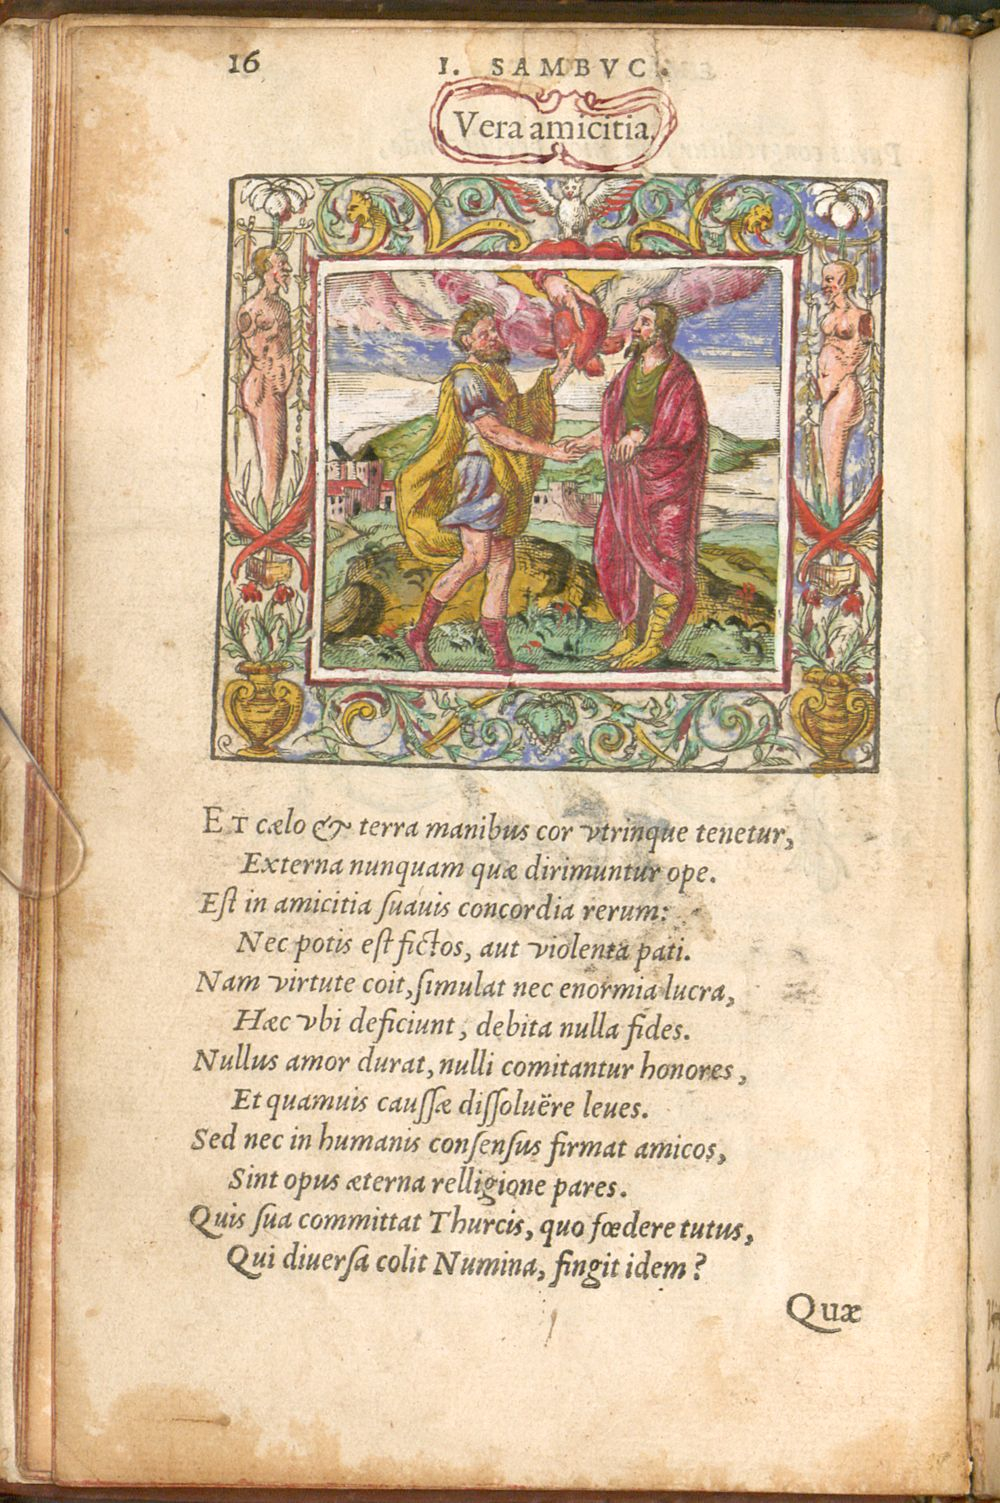 16
I. SAMBVC.
Vera amicitia.
ET cælo & terra manibus cor vtrinque tenetur,
Externa nunquam quæ dirimuntur ope.
Eſt in amicitia ſuauis concordia rerum:
Nec potis eſt fictos, aut violenta pati.
Nam virtute coit, ſimulat nec enormia lucra,
Hæc vbi deficiunt, debita nulla fides.
Nullus amor durat, nulli comitantur honores,
Et quamuis cauſſæ diſſoluëre leues.
Sed nec in humanis conſenſus firmat amicos,
Sint opus æterna relligione pares.
Quis ſua committat Thurcis, quo fœdere tutus,
Qui diuerſa colit Numina, fingit idem?
Quæ